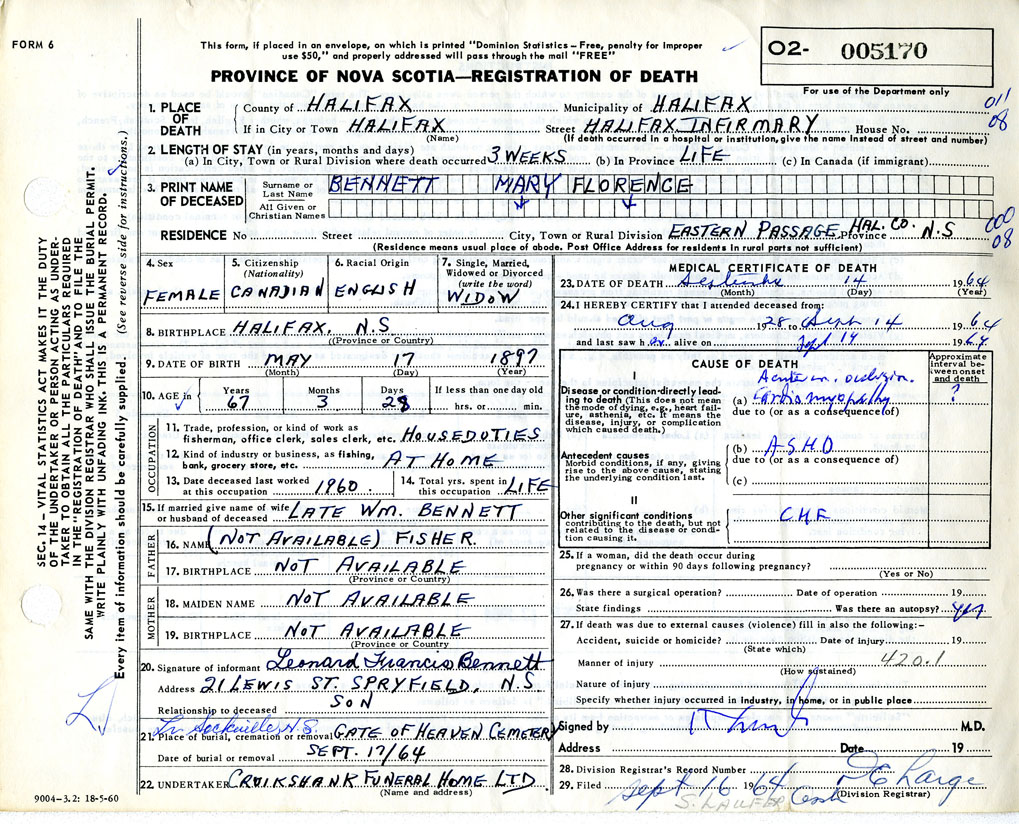 FORM 6
This form, if placed in an envelope, on which is printed "Dominion Statistics – Free, penalty for improper
use $50," and properly addressed will pass through the mail "FREE"
PROVINCE OF NOVA SCOTIA—REGISTRATION OF DEATH
O2- 005170
For use of the Department only
011
08
SEC. 14 – VITAL STATISTICS ACT MAKES IT THE DUTY
OF THE UNDERTAKER OR PERSON ACTING AS UNDER-
TAKER TO OBTAIN ALL THE PARTICULARS REQUIRED
IN THE "REGISTRATION OF DEATH" AND TO FILE THE
SAME WITH THE DIVISION REGISTRAR WHO SHALL ISSUE THE BURIAL PERMIT.
WRITE PLAINLY WITH UNFADING INK. THIS IS A PERMANENT RECORD.
Every item of information should be carefully supplied. (See reverse side for instructions.)
1. PLACE OF DEATH
County of HALIFAX Municipality of HALIFAX
If in City or Town HALIFAX Street HALIFAX INFIRMARY House No.
(Name) (If death occurred in a hospital or institution, give the name instead of street and number)
2. LENGTH OF STAY (in years, months and days)
(a) In City, Town or Rural Division where death occurred 3 WEEKS (b) In Province LIFE (c) In Canada (if immigrant)
3. PRINT NAME OF DECEASED
Surname or Last Name BENNETT MARY FLORENCE
All Given or Christian Names
RESIDENCE No Street City, Town or Rural Division EASTERN PASSAGE HAL. CO. Province N.S
000
08
(Residence means usual place of abode. Post Office Address for residents in rural parts not sufficient)
4. Sex FEMALE
5. Citizenship (Nationality) CANADIAN
6. Racial Origin ENGLISH
7. Single, Married, Widowed or Divorced (write the word) WIDOW
8. BIRTHPLACE HALIFAX, N.S
((Province or Country)
9. DATE OF BIRTH MAY 17 1897
(Month) (Day) (Year)
10. AGE in Years 67 Months 3 Days 28 If less than one day old hrs. or min.
OCCUPATION
11. Trade, profession, or kind of work as
fisherman, office clerk, sales clerk, etc. HOUSEDUTIES
12. Kind of industry or business, as fishing,
bank, grocery store, etc. AT HOME
13. Date deceased last worked at this occupation 1960
14. Total yrs. spent in this occupation LIFE
15. If married give name of wife
or husband of deceased LATE WM. BENNETT
FATHER
16. NAME (NOT AVAILABLE) FISHER.
17. BIRTHPLACE NOT AVAILABLE
(Province or Country)
MOTHER
18. MAIDEN NAME NOT AVAILABLE
19. BIRTHPLACE NOT AVAILABLE
(Province or Country
20. Signature of informant Leonard Francis Bennett
Address 21 LEWIS ST. SPRYFIELD, N.S.
Relationship to deceased SON
Lr Sackville, N.S.
21. Place of burial, cremation or removal GATE OF HEAVEN CEMETERY
Date of burial or removal SEPT. 17/64
22. UNDERTAKER CRUIKSHANK FUNERAL HOME LTD
(Name and address)
9004-3.2: 18-5-60
MEDICAL CERTIFICATE OF DEATH
23. DATE OF DEATH September 14 1964
(Month) (Day) (Year)
24. I HEREBY CERTIFY that I attended deceased from:
Aug 1928 to Sept 14 1964
and last saw her alive on Sept 14 1964
CAUSE OF DEATH
Approximate interval between onset and death
I
Disease or condition directly leading to death (This does not mean the mode of dying, e.g., heart failure, asthenia, etc. It means the disease, injury, or complication which caused death.)
Acute
(a) Cardiomyopathy ?
due to (or as a consequence of)
Antecedent causes
Morbid conditions, if any, giving rise to the above cause, stating the underlying condition last.
(b) ASHD
due to (or as a consequence of)
(c)
II
Other significant conditions
contributing to the death, but not related to the disease or condition causing it.
CHF
25. If a woman, did the death occur during
pregnancy or within 90 days following pregnancy?
(Yes or No)
26. Was there a surgical operation? Date of operation 19
State findings Was there an autopsy? yes
27. If death was due to external causes (violence) fill in also the following:–
Accident, suicide or homicide? Date of injury 19
(State which)
Manner of injury 420.1
(How sustained)
Nature of injury
Specify whether injury occurred in Industry, in home, or in public place
Signed by M.D.
Address Date 19
28. Division Registrar's Record Number
29. Filed Sept 16 1964
(Division Registrar)